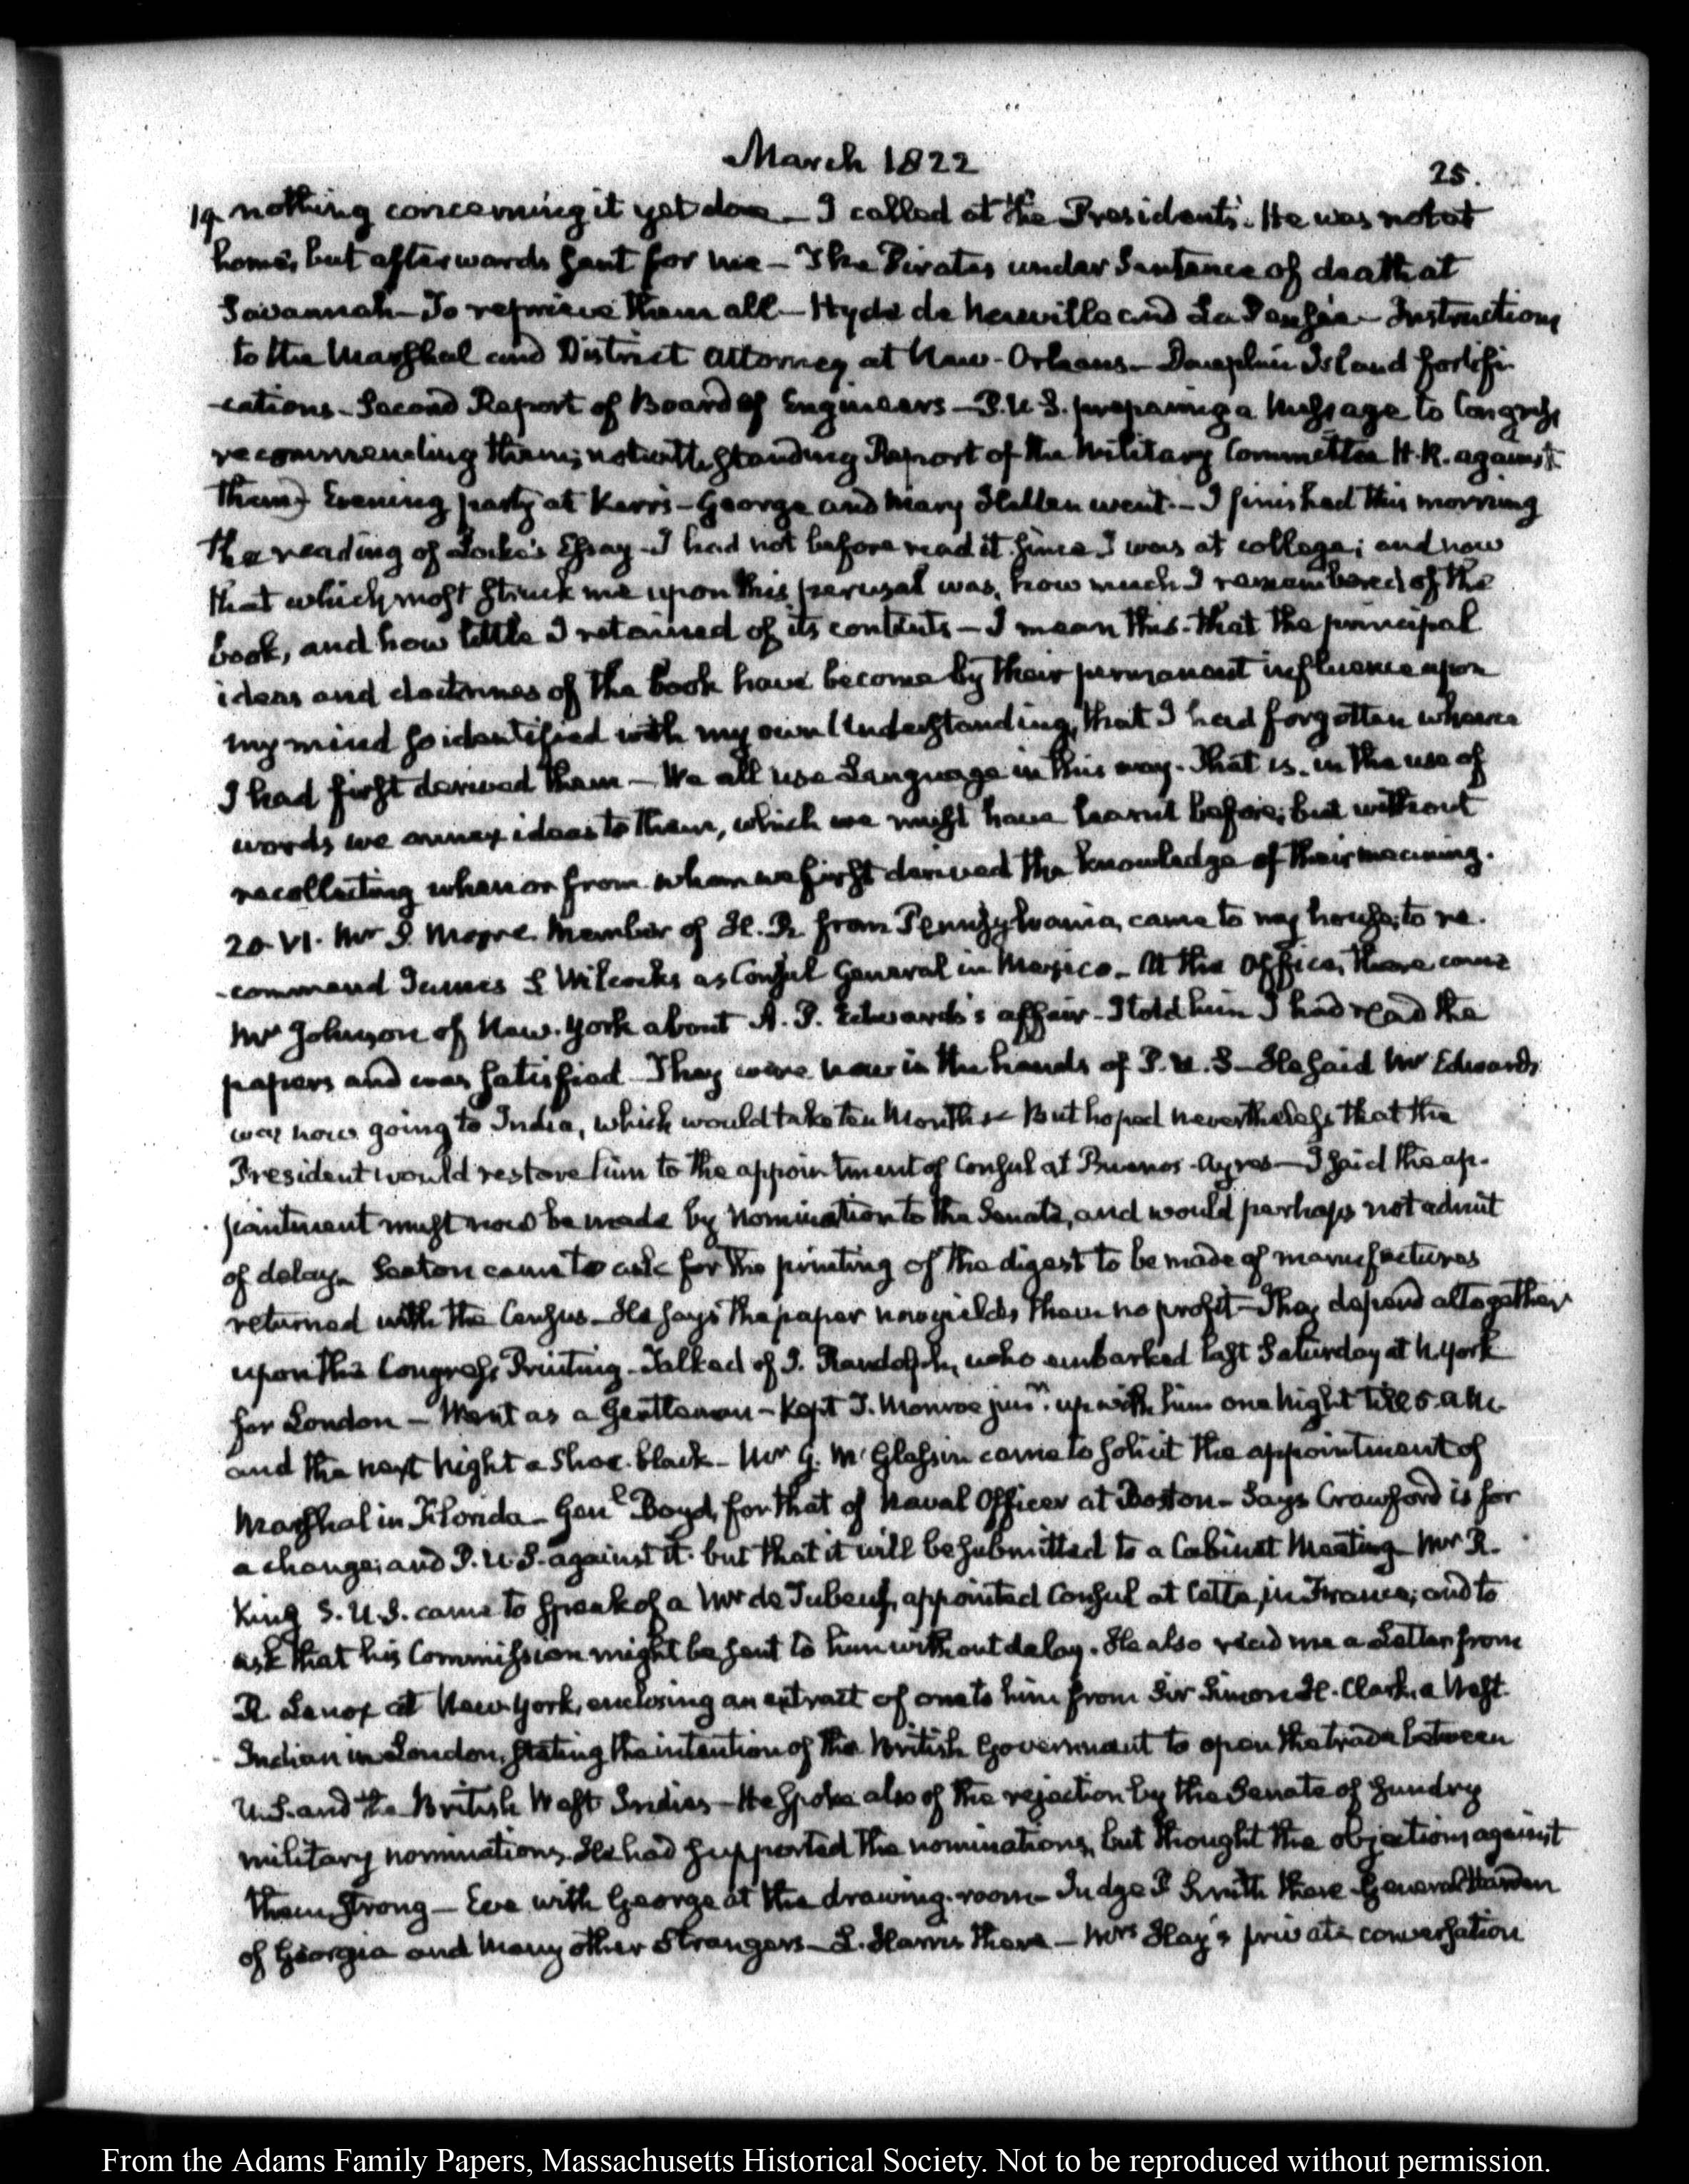 March 1822
25.
19. nothing concerning it yet done – I called at the Presidents. He was not at
home, but afterwards sent for me – The Pirates under Sentence of death at
Savannah – To reprieve them all – Hyde de Neuville and La Pensée – Instructions
to the Marshal and District Attorney at New-Orleans – Dauphin Island fortifi-
-cations – Second Report of Board of Engineers – P.U.S. preparing a Message to Congress
recommending them; notwithstanding Report of the Military Committee H.R. against
them – Evening party at Kerr's – George and Mary Hellen went. – I finished this morning
the reading of Locke's Essay – I had not before read it since I was at college; and now
that which most struck me upon this perusal was, how much I remembered of the
book, and how little I retained of its contents – I mean this. that the principal
ideas and doctrines of the book have become by their permanent influence upon
my mind so identified with my own Understanding, that I had forgotten whence
I had first derived them – We all use Language in this way. That is, in the use of
words we annex ideas to them, which we must have learnt before; but without
recollecting when or from whom we first derived the knowledge of their meaning.
20. VI. Mr S. Moore Member of H.R. from Pennsylvania, came to my house, to re-
-commend James S Wilcocks as Consul General in Mexico – At the Office, there came
Mr Johnson of New-York about A. P. Edwards's affair – I told him I had read the
papers and was satisfied – They were now in the hands of P.U.S – He said Mr Edwards
was now going to India, which would take ten Months – But hoped nevertheless that the
President would restore him to the appointment of Consul at Buenos-Ayres – I said the ap-
pointment must now be made by Nomination to the Senate, and would perhaps not admit
of delay – Seaton came to ask for the printing of the digest to be made of manufactures
returned with the Census – He says the paper now yields them no profit – They depend altogether
upon the Congress Printing – Talked of J. Randolph, who embarked last Saturday at N. York
for London – Went as a Gentleman – Kept J. Monroe junr. up with him one night till 5. A.M.
and the next night a Shoe-black – Mr G. McGlassin came to solicit the appointment of
Marshal in Florida – Genl Boyd, for that of Naval Officer at Boston – Says Crawford is for
a change; and P.U.S. against it. but that it will be submitted to a Cabinet Meeting – Mr R.
King S.U.S. came to speak of a Mr de Tubeuf, appointed Consul at Cette, in France; and to
ask that his Commission might be sent to him without delay. He also read me a Letter from
R. Lenox at New York, enclosing an extract of one to him from Sir Simon H. Clark, a West
Indian in London, stating the intention of the British Government to open the trade between
U.S. and the British West Indies – He spoke also of the rejection by the Senate of sundry
military nominations. He had supported the nominations, but thought the objections against
them strong – Eve with George at the drawing-room – Judge Smith there General Harden
of Georgia and many other Strangers – L. Harris there – Mrs Hay's private conversation
From the Adams Family Papers, Massachusetts Historical Society. Not to be reproduced without permission.